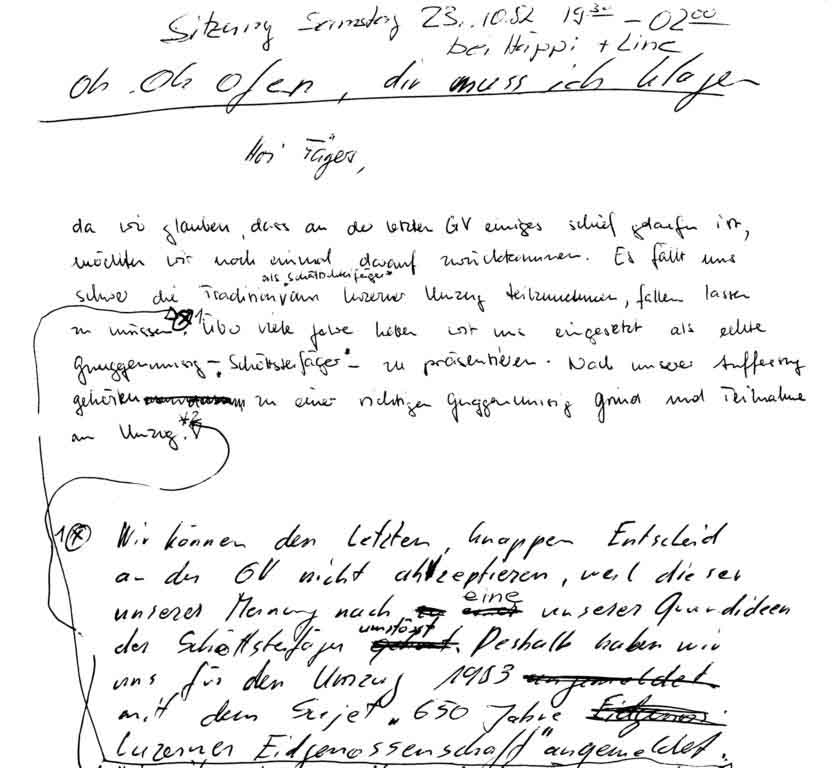 Sitzung Samstag 23.10.82 19³⁰ - 02⁰⁰
bei Häppi + Line
oh oh ofen, dir muss ich klagen
Hoi Jäger,
da wir glauben, dass an der letzten GV einiges schief gelaufen ist,
möchten wir noch einmal darauf zurückkommen. Es fällt uns
als "Schöttsteijäger"
schwer die Tradition, am Luzerner Umzug teilzunehmen, fallen lassen
zu müssen. *1 Über viele Jahre haben wir uns eingesetzt als echte
Gruggenmusig - "Schöttsteijäger" - zu präsentieren. Nach unserer Auffassung
gehören zu einer richtigen Guggenmusig Grind und Teilnahme
am Umzug. *2
1* Wir können den letzten, knappen Entscheid
an der GV nicht akzeptieren, weil dieser
unserer Meinung nach eine unserer Grundideen
der Schöttsteijäger umstösst. Deshalb haben wir
uns für den Umzug 1983
mit dem Sujet "650 Jahre
Luzerner Eidgenossenschaft" angemeldet.